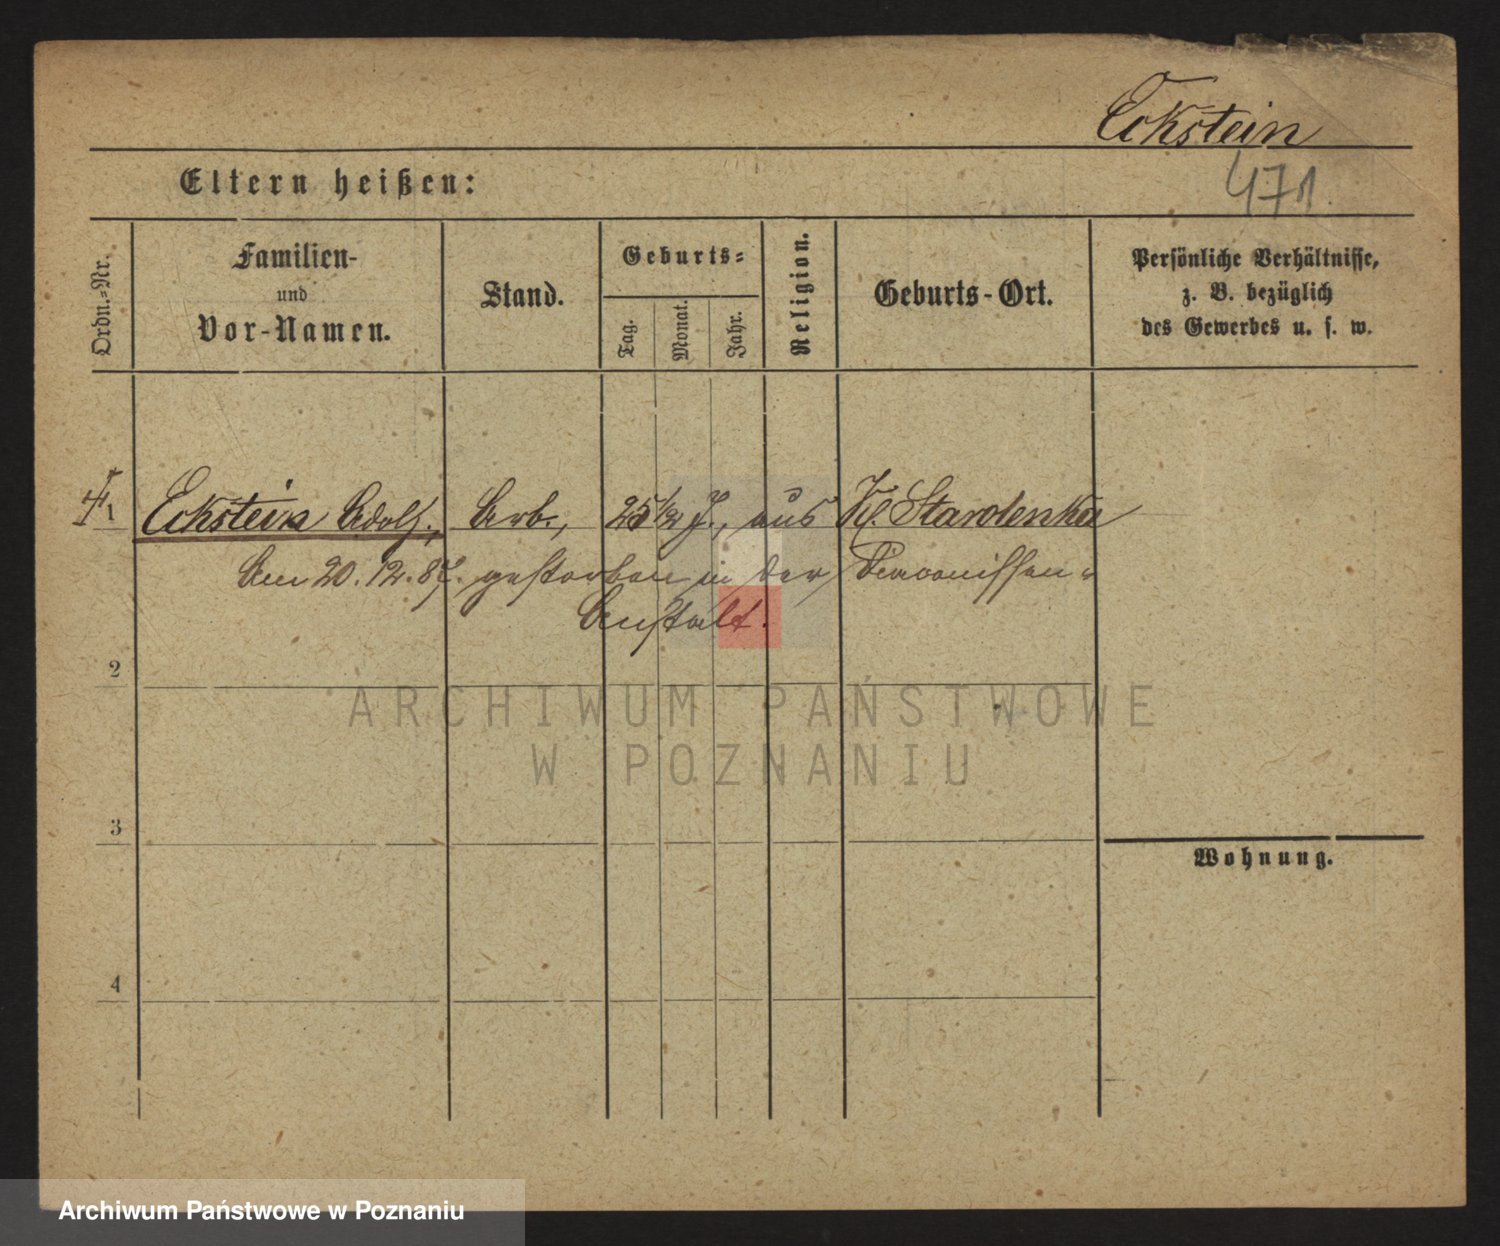 Eckstein
471.
Eltern heißen:
Ordn.=Nr.
Familien-
und
Vor-Namen.
Stand.
Geburts=
Tag.
Monat.
Jahr.
Religion.
Geburts-Ort.
Persönliche Verhältnisse,
z. B. bezüglich
des Gewerbes u. s. w.
1 Eckstein Adolf, Arb., 25 1/2 J., aus Kl. Starolenka
Am 20.12.87. gestorben in der Diaconissen=
Anstalt.
2
ARCHIWUM PAŃSTWOWE
W POZNANIU
3
Wohnung.
4
Archiwum Państwowe w Poznaniu